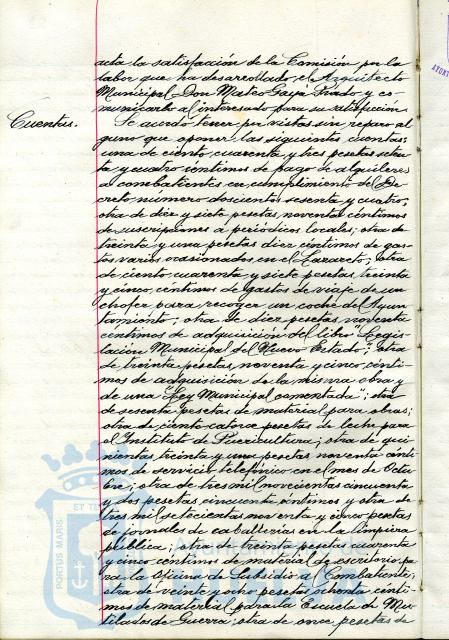 acta la satisfacción de la Comisión por la
labor que ha desarrollado el Arquitecto
Municipal Don Mateo Gayá Prado y co-
municarlo al interesado para su satisfacción.
Cuentas.
Se acordó tener por vistas sin reparo al
guno que oponer, las siguientes cuentas;
una de ciento cuarenta y tres pesetas seten
ta y cuatro céntimos de pago de alquileres
a combatientes en cumplimiento del De
creto número doscientos sesenta y cuatro;
otra de diez y siete pesetas, noventa céntimos
de suscripciones a periódicos locales; otra de
treinta y una pesetas diez céntimos de gas-
tos varios ocasionados en el Lazareto; otra
de ciento cuarenta y siete pesetas, treinta
y cinco céntimos de gastos de viaje de un
chofer para recoger un coche del Ayun
tamiento; otra de diez pesetas, noventa
céntimos de adquisición del libro "Legis-
lación Municipal del Nuevo Estado"; otra
de treinta pesetas, noventa y cinco cénti-
mos de adquisición de la misma obra y
de una "Ley Municipal comentada"; otra
de sesenta pesetas de material para obras;
otra de ciento catorce pesetas de leche para
el Instituto de Puericultura; otra de qui
nientas treinta y una pesetas noventa cénti
mos de servicio telefónico en el mes de Octu
bre; otra de tres mil novecientas cincuenta
y dos pesetas cincuenta céntimos y otra de
tres mil setecientas noventa y cinco pesetas
de jornales de caballerías en la limpieza
pública; otra de treinta pesetas cuarenta
y cinco céntimos de material de escritorio pa
ra la Oficina de Subsidio al Combatiente;
otra de veinte y ocho pesetas ochenta cénti
mos de material para la Escuela de Mu-
tilados de Guerra; otra de once pesetas de
PORTUS MARIS
ET TE
Ayuntamiento de